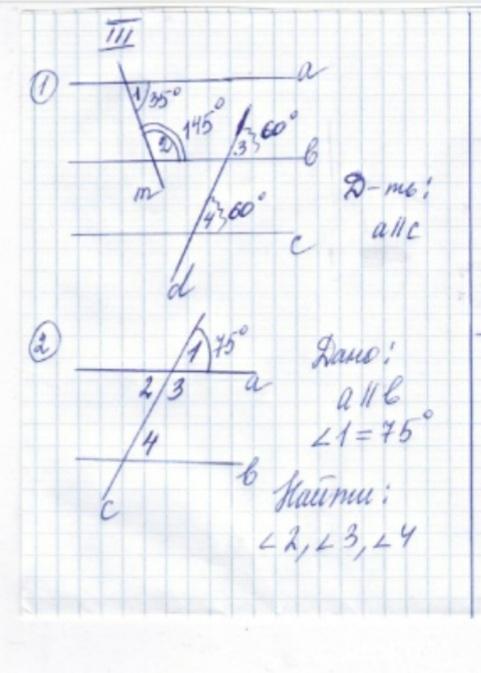 III
① a
1 35°
145°
2
3 60°
b
m
4 60°
c
d
Д-ть:
a∥c
②
1 75°
2 3 a
4
b
c
Дано:
a∥b
∠1=75°
Найти:
∠2, ∠3, ∠4